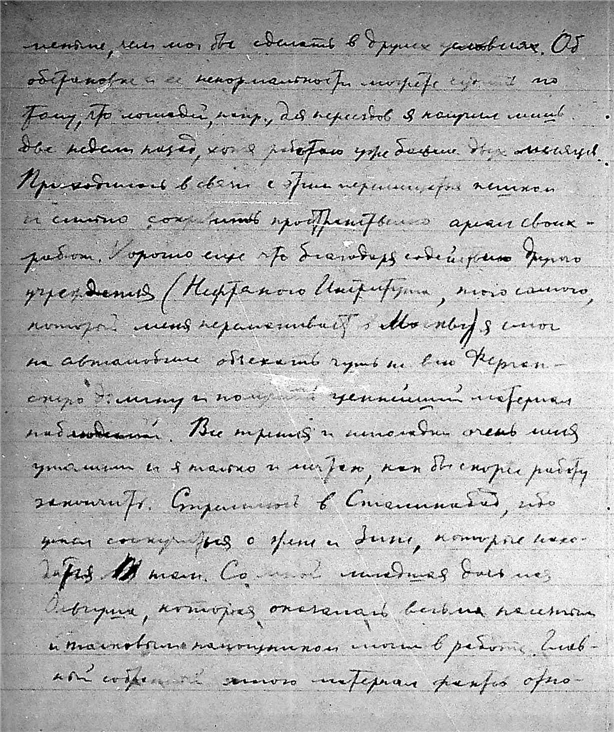 меньше, чем мог бы сделать в других условиях. Об
обстановке и ее ненормальности можете судить по
тому, что лошадей, напр., для переездов я получил лишь
две недели назад, хотя работаю уже больше двух месяцев.
Приходилось в связи с этим перемещаться пешком
и сильно сократить пространственно ареал своих
работ. Хорошо еще что благодаря содействию другого
учреждения (Нефтяного Института, того самого,
который меня переманивает в Москву) я смог
на автомобиле объехать чуть не всю Ферган-
скую долину и получить ценнейший материал
наблюдений. Все трения и неполадки очень меня
утомили и я только и мечтаю, как бы скорее работу
закончить. Стремлюсь в Сталинабад, ибо
успел соскучиться о жене и Зине, которые нахо-
дятся там. Со мной младшая дочь моя
которая оказалась весьма
и толковым помощником моим в работе. Глав-
ный собранный мною материал